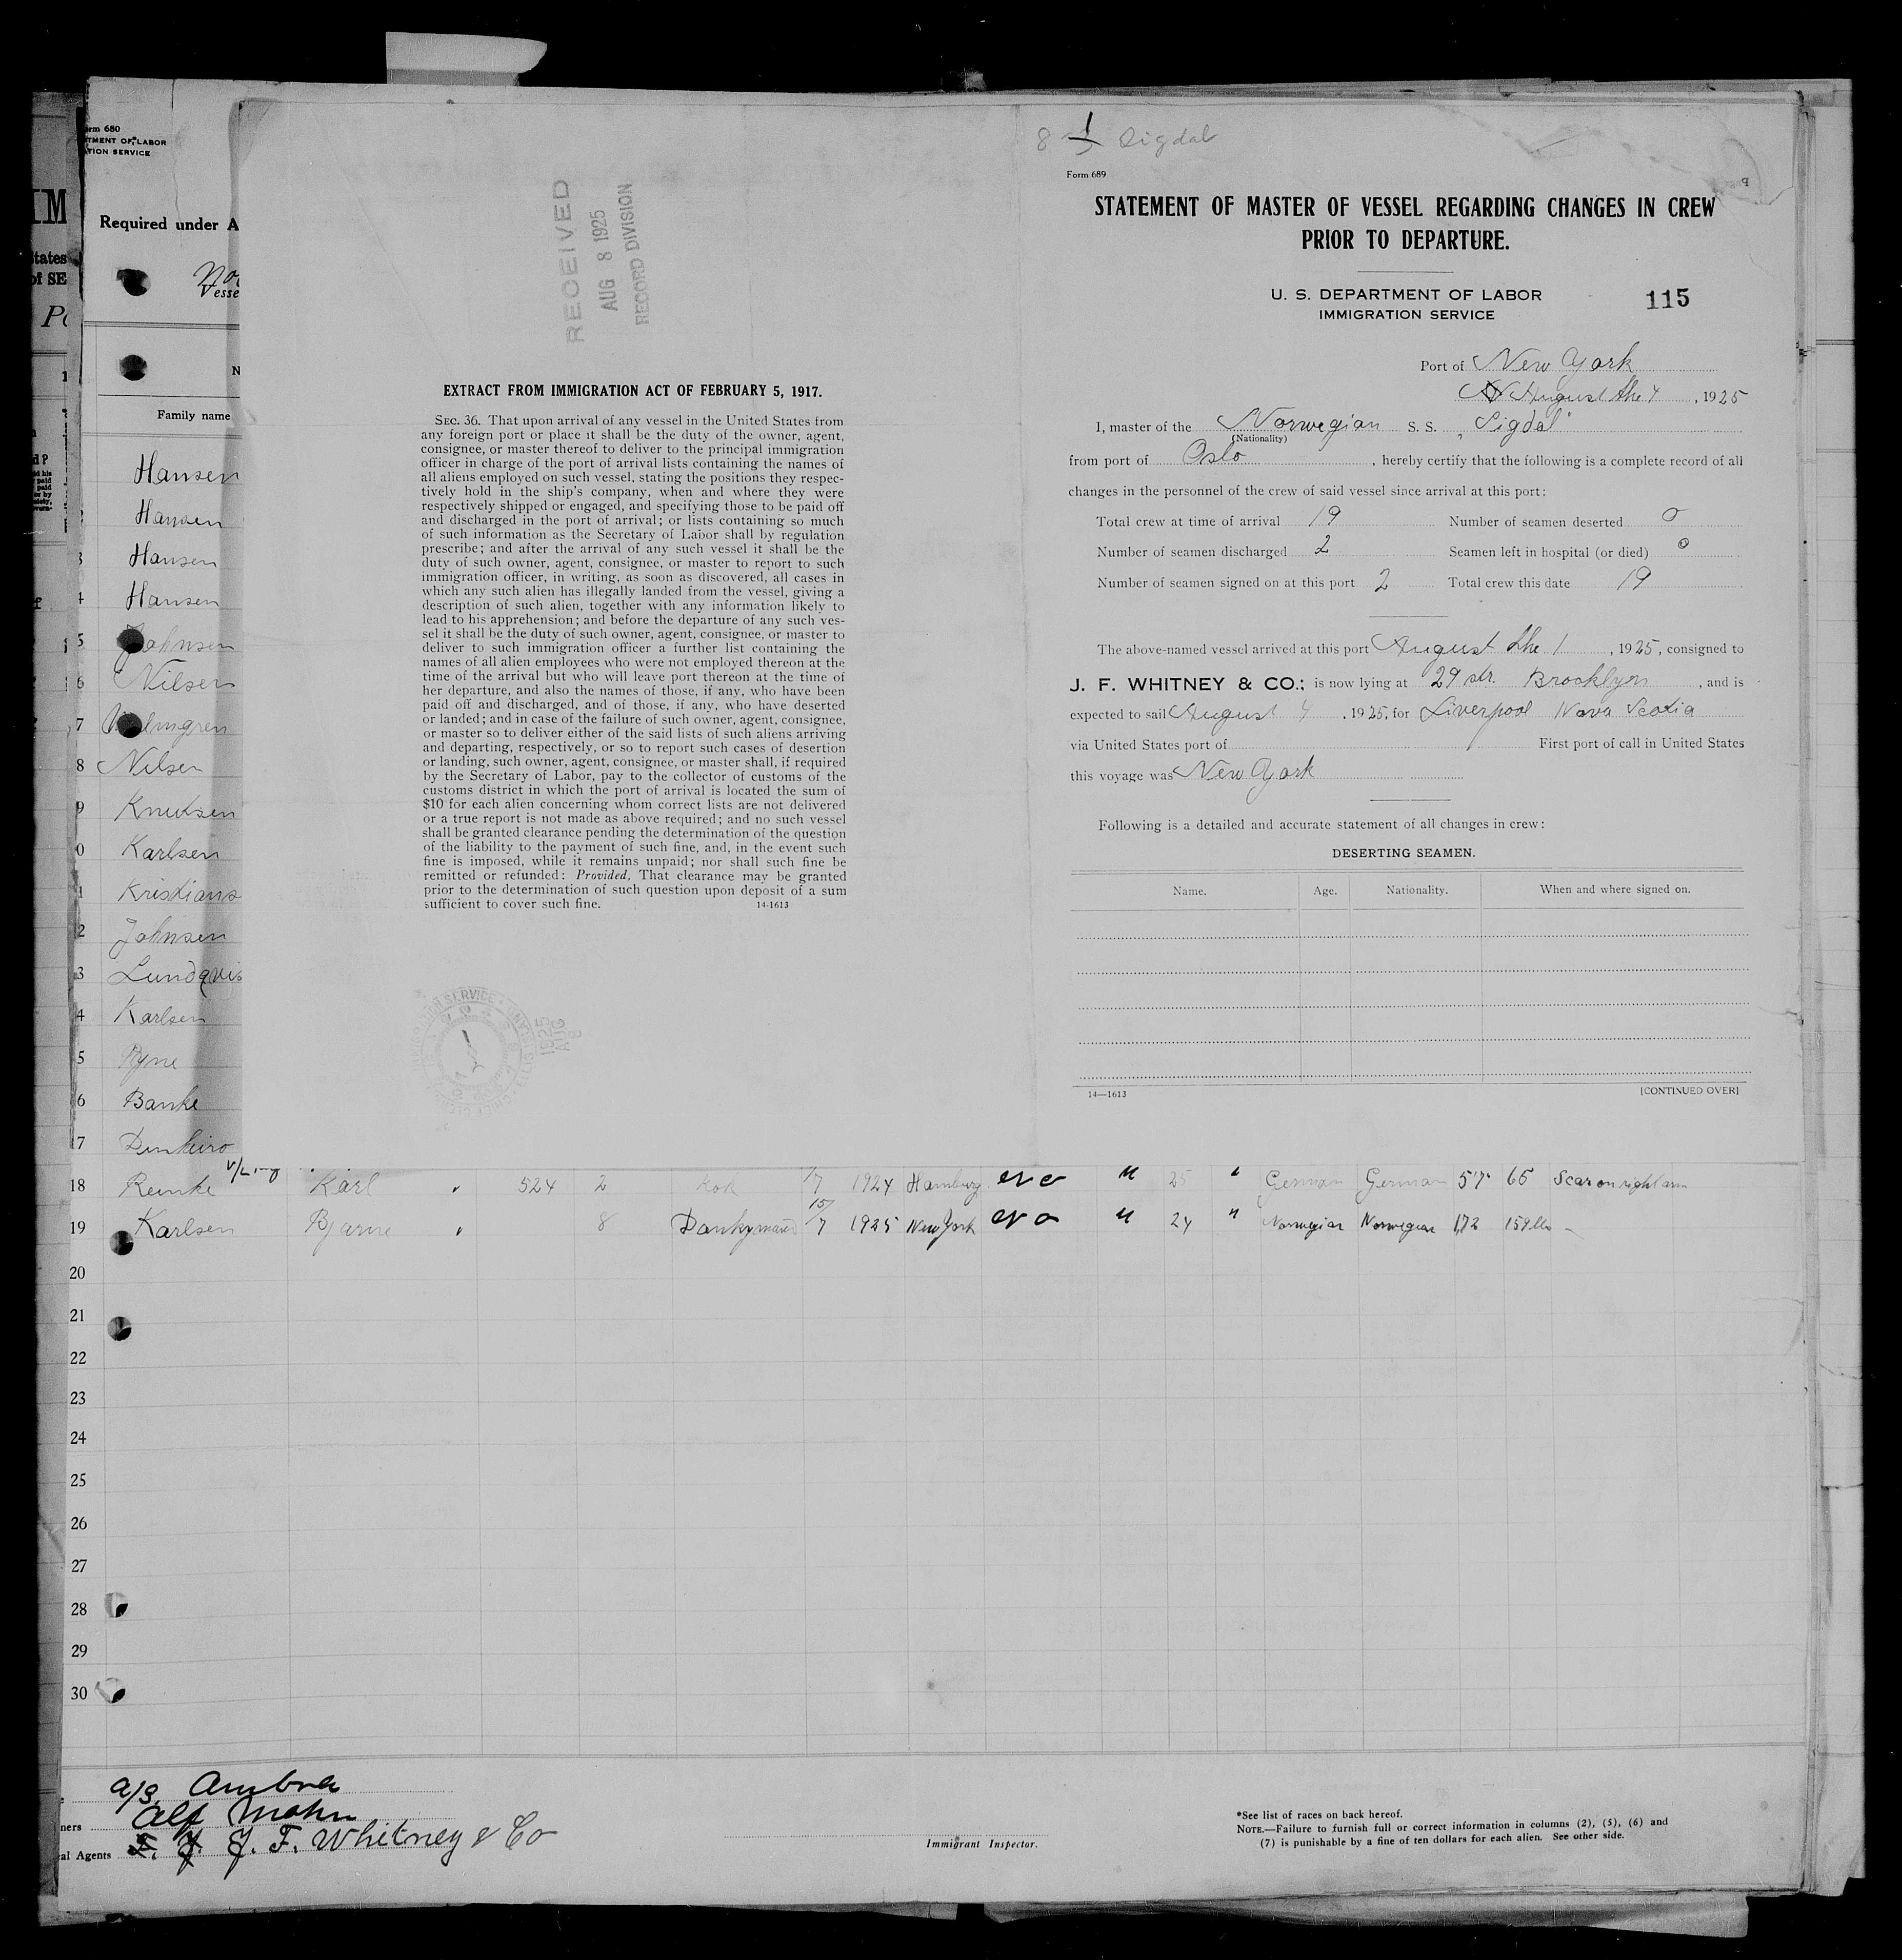 8 1 Sigdal
Form 689
STATEMENT OF MASTER OF VESSEL REGARDING CHANGES IN CREW
PRIOR TO DEPARTURE.
U. S. DEPARTMENT OF LABOR
IMMIGRATION SERVICE
115
Port of New York
August the 4, 1925
I, master of the Norwegian S. S. „Sigdal"
(Nationality)
from port of Oslo, hereby certify that the following is a complete record of all
changes in the personnel of the crew of said vessel since arrival at this port:
Total crew at time of arrival 19 Number of seamen deserted 0
Number of seamen discharged 2 Seamen left in hospital (or died) 0
Number of seamen signed on at this port 2 Total crew this date 19
The above-named vessel arrived at this port August the 1, 1925, consigned to
J. F. WHITNEY & CO.; is now lying at 29 str. Brocklyn, and is
expected to sail August 4, 1925, for Liverpool Nova Scotia
via United States port of First port of call in United States
this voyage was New York
Following is a detailed and accurate statement of all changes in crew:
DESERTING SEAMEN.
Name. Age. Nationality. When and where signed on.
14—1613 [CONTINUED OVER]
RECEIVED
AUG 8 1925
RECORD DIVISION
EXTRACT FROM IMMIGRATION ACT OF FEBRUARY 5, 1917.
SEC. 36. That upon arrival of any vessel in the United States from
any foreign port or place it shall be the duty of the owner, agent,
consignee, or master thereof to deliver to the principal immigration
officer in charge of the port of arrival lists containing the names of
all aliens employed on such vessel, stating the positions they respec-
tively hold in the ship's company, when and where they were
respectively shipped or engaged, and specifying those to be paid off
and discharged in the port of arrival; or lists containing so much
of such information as the Secretary of Labor shall by regulation
prescribe; and after the arrival of any such vessel it shall be the
duty of such owner, agent, consignee, or master to report to such
immigration officer, in writing, as soon as discovered, all cases in
which any such alien has illegally landed from the vessel, giving a
description of such alien, together with any information likely to
lead to his apprehension; and before the departure of any such ves-
sel it shall be the duty of such owner, agent, consignee, or master to
deliver to such immigration officer a further list containing the
names of all alien employees who were not employed thereon at the
time of the arrival but who will leave port thereon at the time of
her departure, and also the names of those, if any, who have been
paid off and discharged, and of those, if any, who have deserted
or landed; and in case of the failure of such owner, agent, consignee,
or master so to deliver either of the said lists of such aliens arriving
and departing, respectively, or so to report such cases of desertion
or landing, such owner, agent, consignee, or master shall, if required
by the Secretary of Labor, pay to the collector of customs of the
customs district in which the port of arrival is located the sum of
$10 for each alien concerning whom correct lists are not delivered
or a true report is not made as above required; and no such vessel
shall be granted clearance pending the determination of the question
of the liability to the payment of such fine, and, in the event such
fine is imposed, while it remains unpaid; nor shall such fine be
remitted or refunded: Provided, That clearance may be granted
prior to the determination of such question upon deposit of a sum
sufficient to cover such fine. 14-1613
rm 680
TMENT OF LABOR
TION SERVICE
Required under A
Vesse
Family name
Hansen
Hansen
3 Hansen
4 Hansen
5 Johnsen
6 Nilsen
7 Holmgren
8 Nilsen
9 Knutsen
0 Karlsen
1 Kristians
2 Johnsen
3 Lundqvis
4 Karlsen
5 Ryne
6 Banke
7 Dinheiro
18 Reinke Karl " 524 2 kok 1/7 1924 Hamburg no " 25 " German German 5'7" 65 Scar on right arm
19 Karlsen Bjarne " 8 Donkeyman 15/7 1925 New York no " 24 " Norwegian Norwegian 1,72 159 lbs —
20
21
22
23
24
25
26
27
28
29
30
a/s Ambra
ners Alf Mohn
al Agents J. F. Whitney & Co
Immigrant Inspector.
*See list of races on back hereof.
NOTE.—Failure to furnish full or correct information in columns (2), (5), (6) and
(7) is punishable by a fine of ten dollars for each alien. See other side.